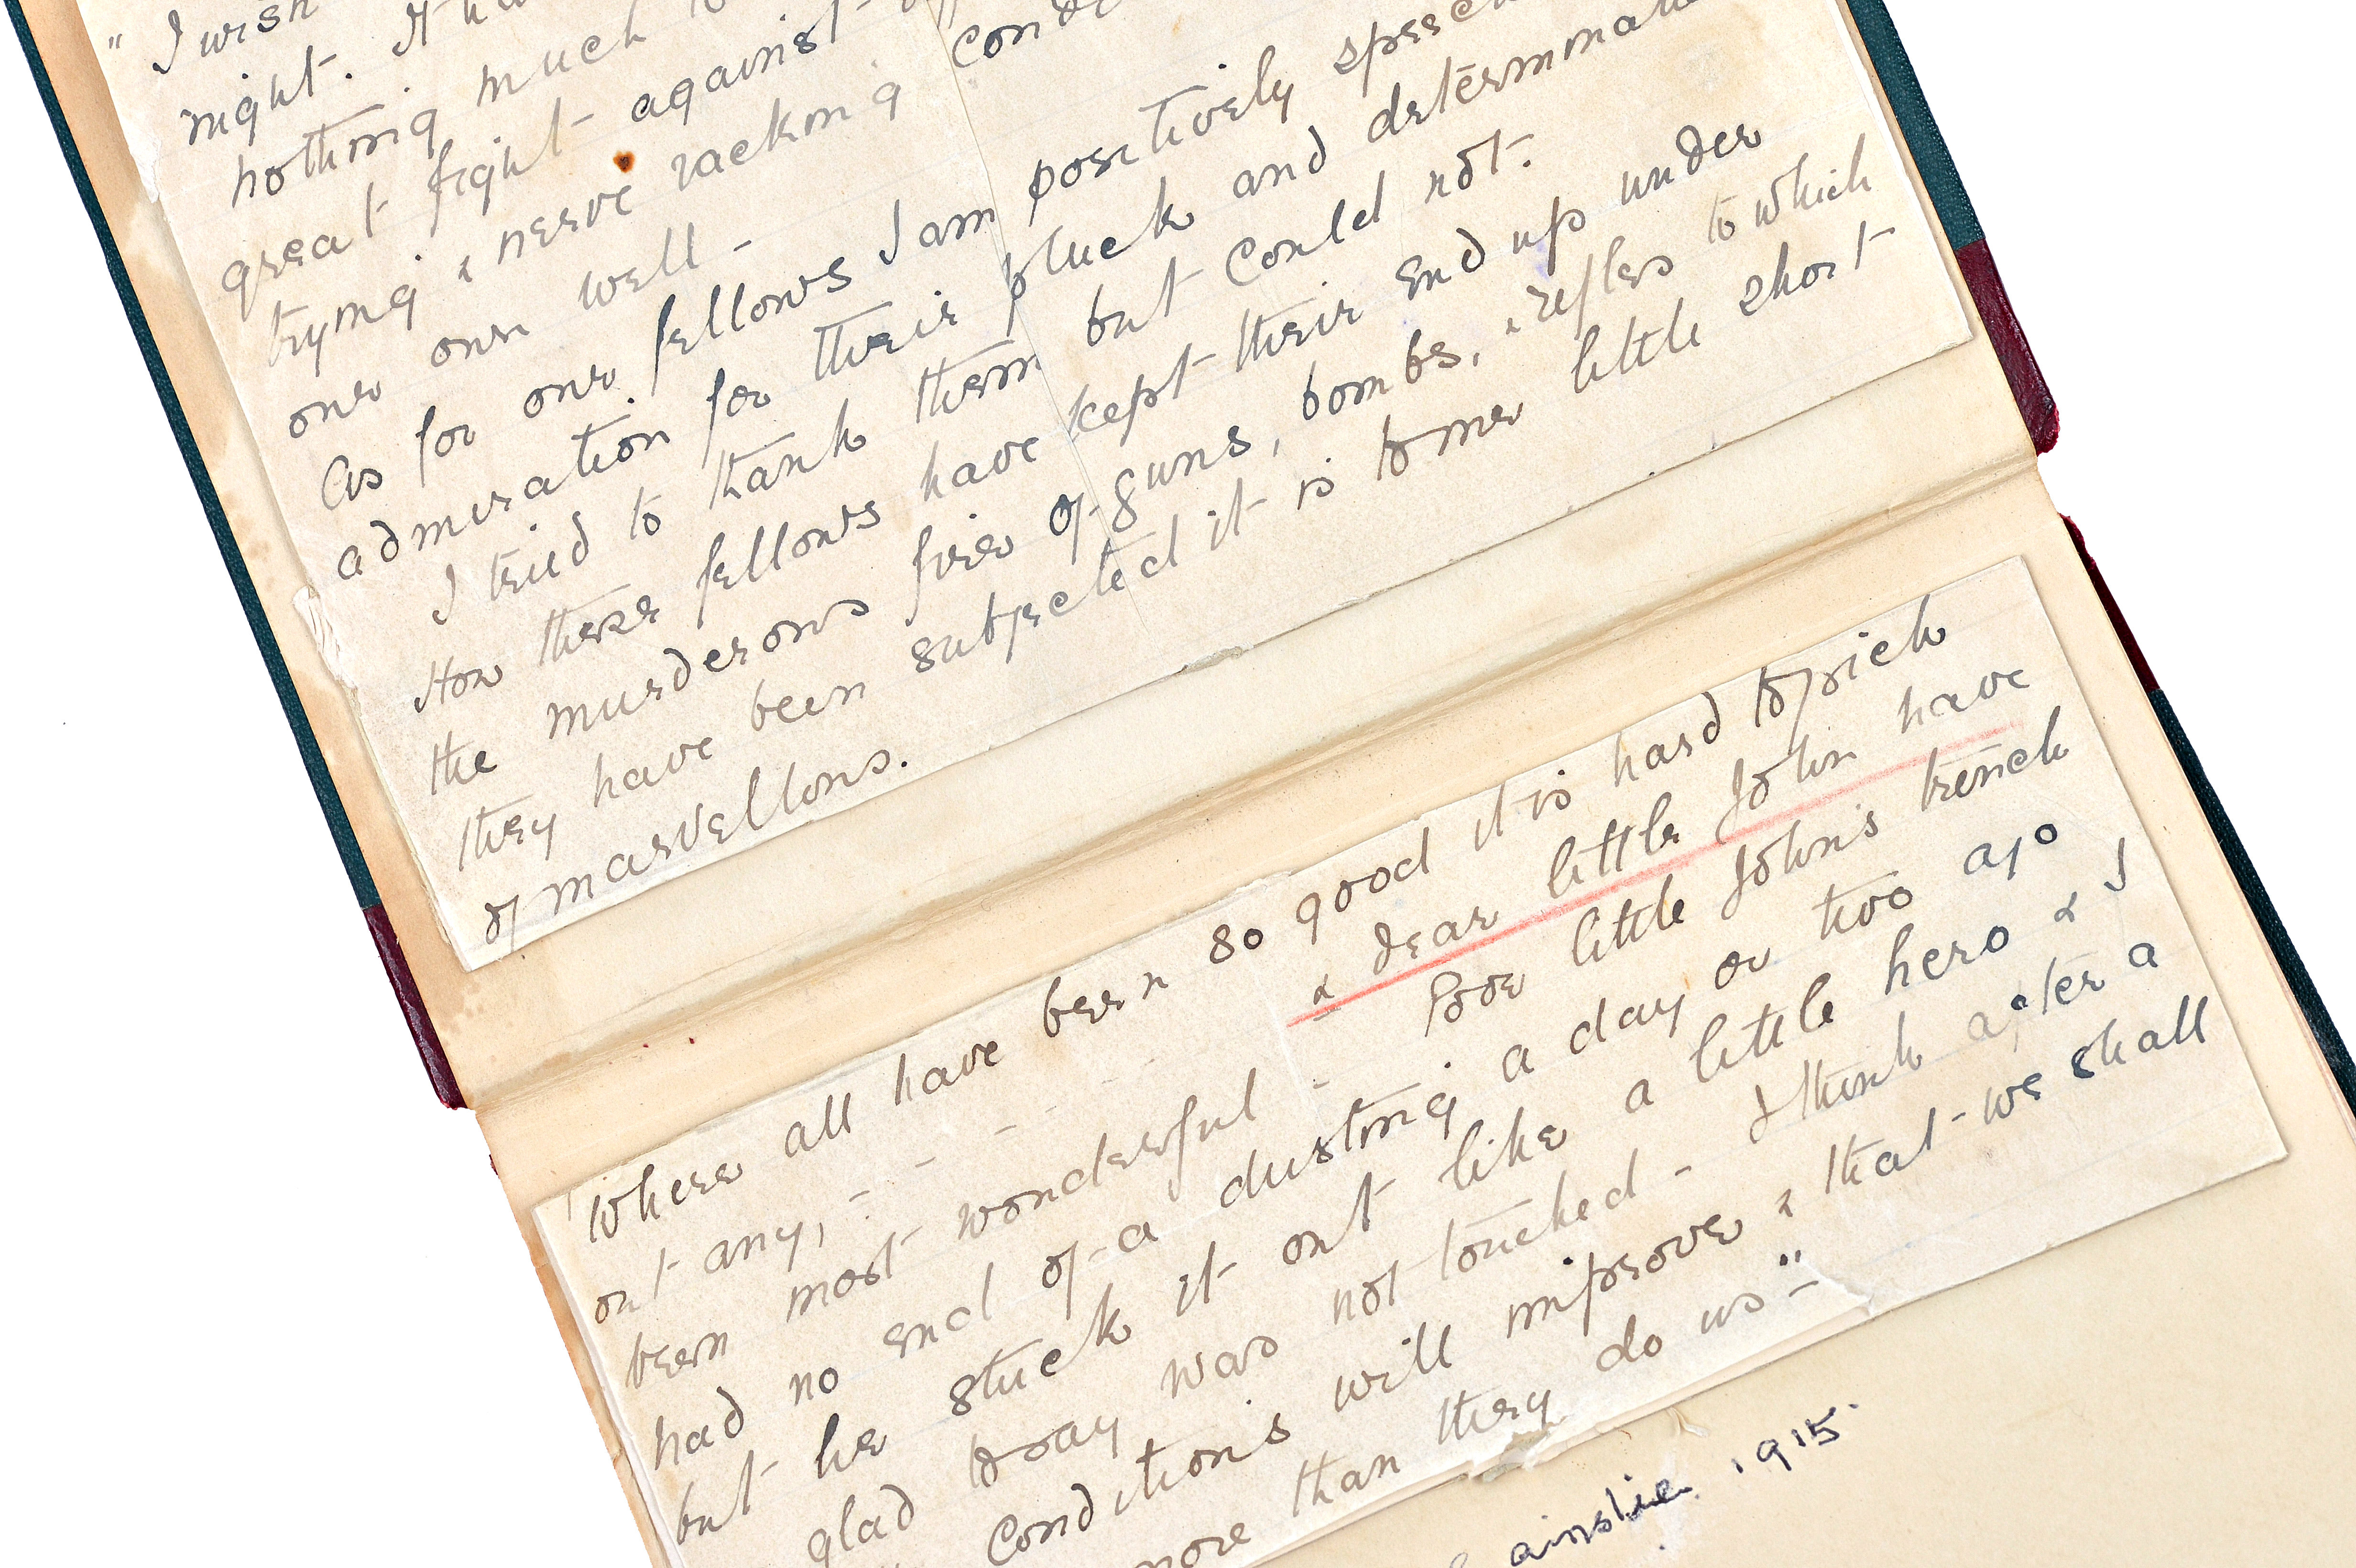 " I wish
night. It
nothing much
great fight against
trying & nerve racking
our own well -
As for our fellows I am positively
admiration for their pluck and
I tried to thank them but could not.
How these fellows have kept their end up under
the murderous fire of guns, bombs, & rifles to which
they have been subjected it is to me little short
of marvellous.
Where all have been so good it is hard to pick
out any, - - - - - & dear little John have
been most wonderful - Poor little John's trench
had no end of a dusting a day or two ago
but he stuck it out like a little hero & I
glad to say was not touched - I think after a
conditions will improve & that we shall
more than they do us - "
Ainslie. 1915.